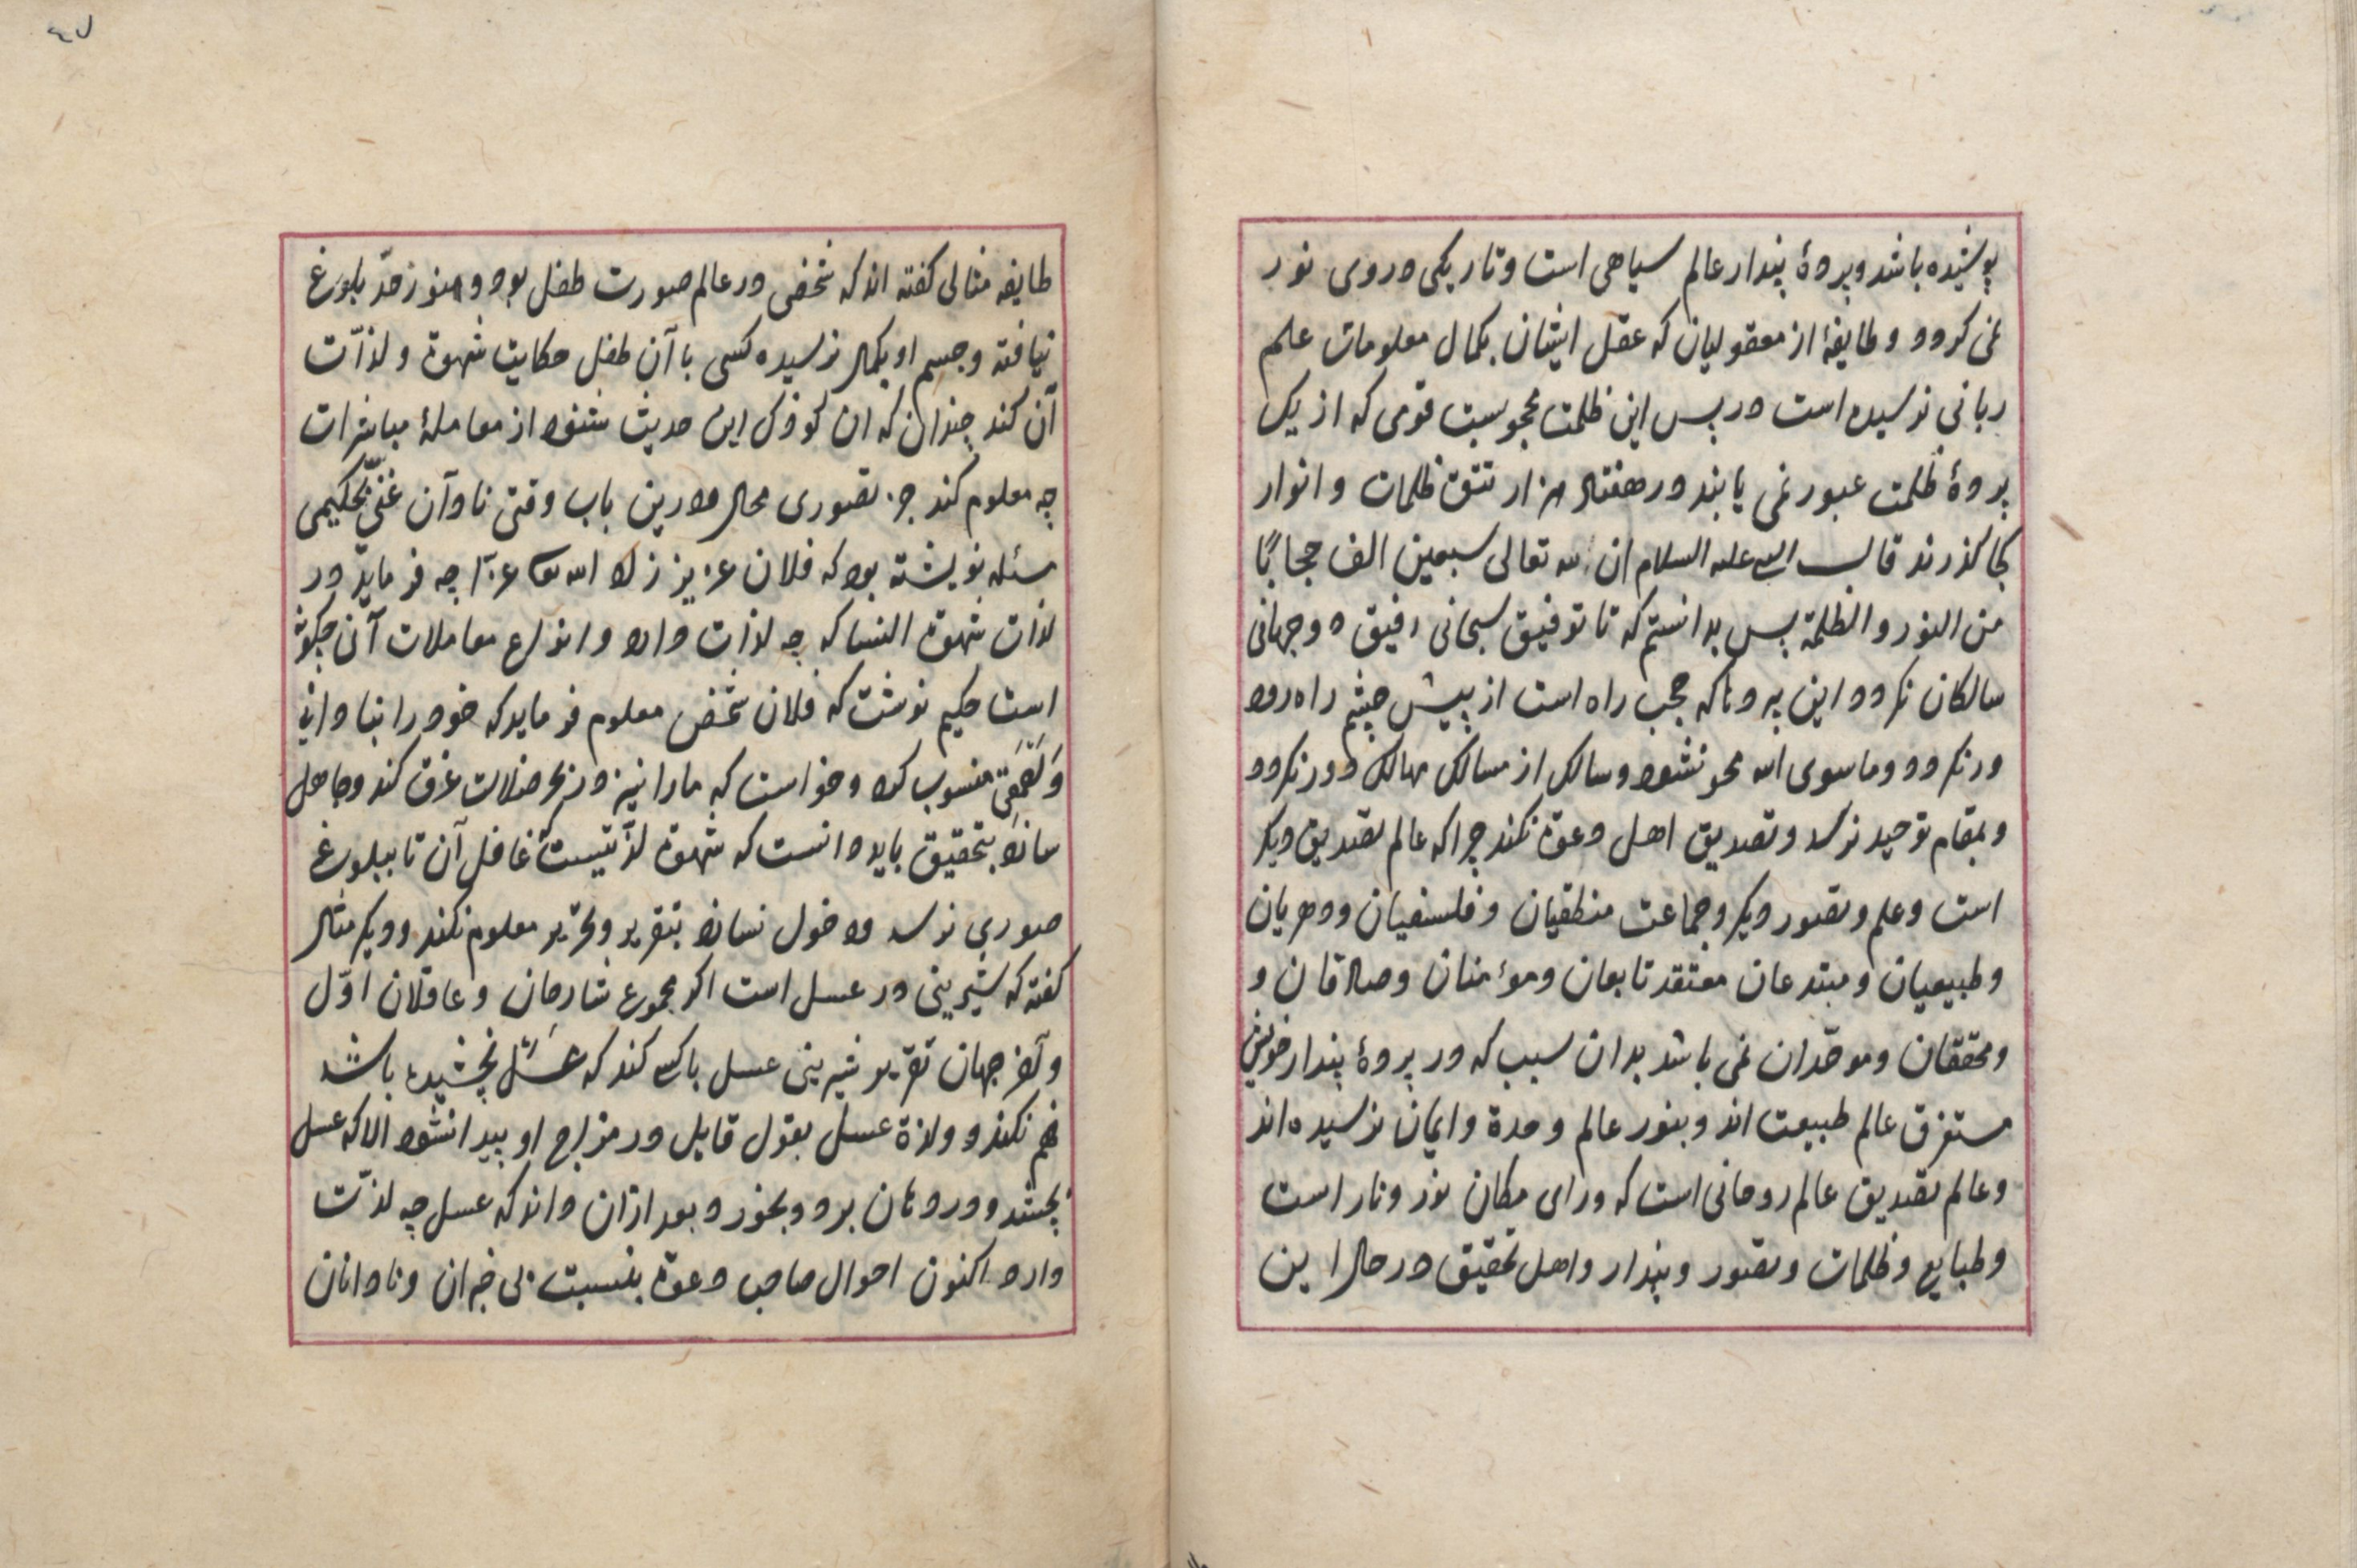 پوشیده باشد و پردهٔ پندار عالم سیاهی است و تاریکی در وی نور
نمی کردد و طایفهٔ از معقولیان که عقل ایشان بکمال معلومات علم
ربانی نرسیده است در پس این ظلمت محجوبست قومی که از یک
پردهٔ ظلمت عبور نمی یابند در هفتاد هزار تتق ظلمات و انوار
کجا کذرند قال النبی علیه السلام ان لله تعالی سبعین الف حجابًا
من النور و الظلمة پس بدانستم که تا توفیق سبحانی رفیق دو جهانی
سالکان نکردد این پردها که حجب راه است از پیش چشم راه رود
در نکردد و ماسوی الله محو نشود و سالک از مسالک مهالک دور نکردد
و بمقام توحید نرسد و تصدیق اهل دعوت نکند چرا که عالم تصدیق دیکر
است و علم و تصور دیکر و جماعت منطقیان و فلسفیان و دهریان
و طبیعیان و مبتدعان معتقد تابعان و مؤمنان و صادقان و
و محققان و موحّدان نمی باشد بدان سبب که در پردهٔ پندار خویش
مستغرق عالم طبیعت اند و بنور عالم وحدة و ایمان نرسیده اند
و عالم تصدیق عالم روحانی است که ورای مکان نور و نار است
و طبایع و ظلمات و تصور و پندار و اهل تحقیق در حال این
٤٧
طایفه مثالی کفته اند که شخصی در عالم صورت طفل بود و هنوز حدّ بلوغ
نیافته و جسم او بکمال نرسیده کسی با آن طفل حکایت شهوت و لذّات
آن کند چندان که ان کودک این حدیث شنود از معاملهٔ مباشرات
چه معلوم کند جز تصوری محال درین باب وقتی نادان غنیّ بحکیمی
مسئله نویشته بود که فلان عزیز زاد الله عزا چه فرماید در
لذات شهوت النسا که چه لذات دارد و انواع معاملات آن چکونه
است حکیم نوشت که فلان شخص معلوم فرماید که خود را بنادانی
منسوب کرد و خواست که ما را نیز در بحر ضلالت غرق کند و جاهل
بتحقیق باید دانست که شهوت لذّتیست غافل آن تا ببلوغ
صوری نرسد دخول نساء بتقریر و تحریر معلوم نکند و دیکر مثال
کفته که شیرینی در عسل است اکر مجموع شارحان و عاقلان اوّل
و آخر جهان تقریر شیرینی عسل با کسی کند که عسل نچشیده باشد
فهم نکند و لذة عسل بقول قایل در مزاج او پیدا نشود الا که عسل
بچشد و در دهان برد و بخورد بعد ازان داند که عسل چه لذّت
دارد اکنون احوال صاحب دعوت بنسبت بی خبران و نادانان